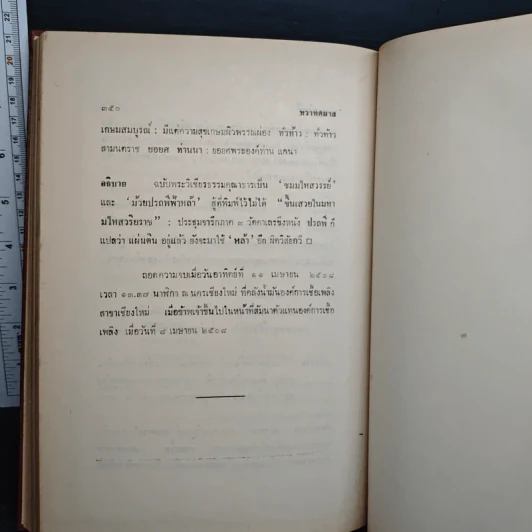 ๓๔๐ ทวาทศมาส
เกษมสมบูรณ์ : มีแต่ความสุขเกษมผิวพรรณผ่อง ทั่วท้าว : ทั่วท้าว
สามนตราช ขอยศ ท่านนา : ขอยศพระองค์ท่าน แลนา
อธิบาย ฉบับพระวิเชียรธรรมคุณาธารเป็น ‘ขมมไหสวรรย์’
และ ‘ม้วยปรถพีฟ้าหล้า’ ผู้ตีพิมพ์ไว้ไม่ได้ “ขึ้นเสวยในมหา
มไหสวริยราช” : ประชุมจารึกภาค ๓ วัดตาเลรซึงหนัง ปรถพี ก็
แปลว่า แผ่นดิน อยู่แล้ว ยังจะมาใช้ ‘หล้า’ อีก ผิดวิสัยกวี
ถอดความจบเมื่อวันอาทิตย์ที่ ๑๑ เมษายน ๒๕๐๘
เวลา ๑๓.๓๗ นาฬิกา ณ นครเชียงใหม่ ที่คลังน้ำมันองค์การเชื้อเพลิง
สาขาเชียงใหม่ เมื่อข้าพเจ้าขึ้นไปในหน้าที่สัมนาตัวแทนองค์การเชื้อ
เพลิง เมื่อวันที่ ๘ เมษายน ๒๕๐๘